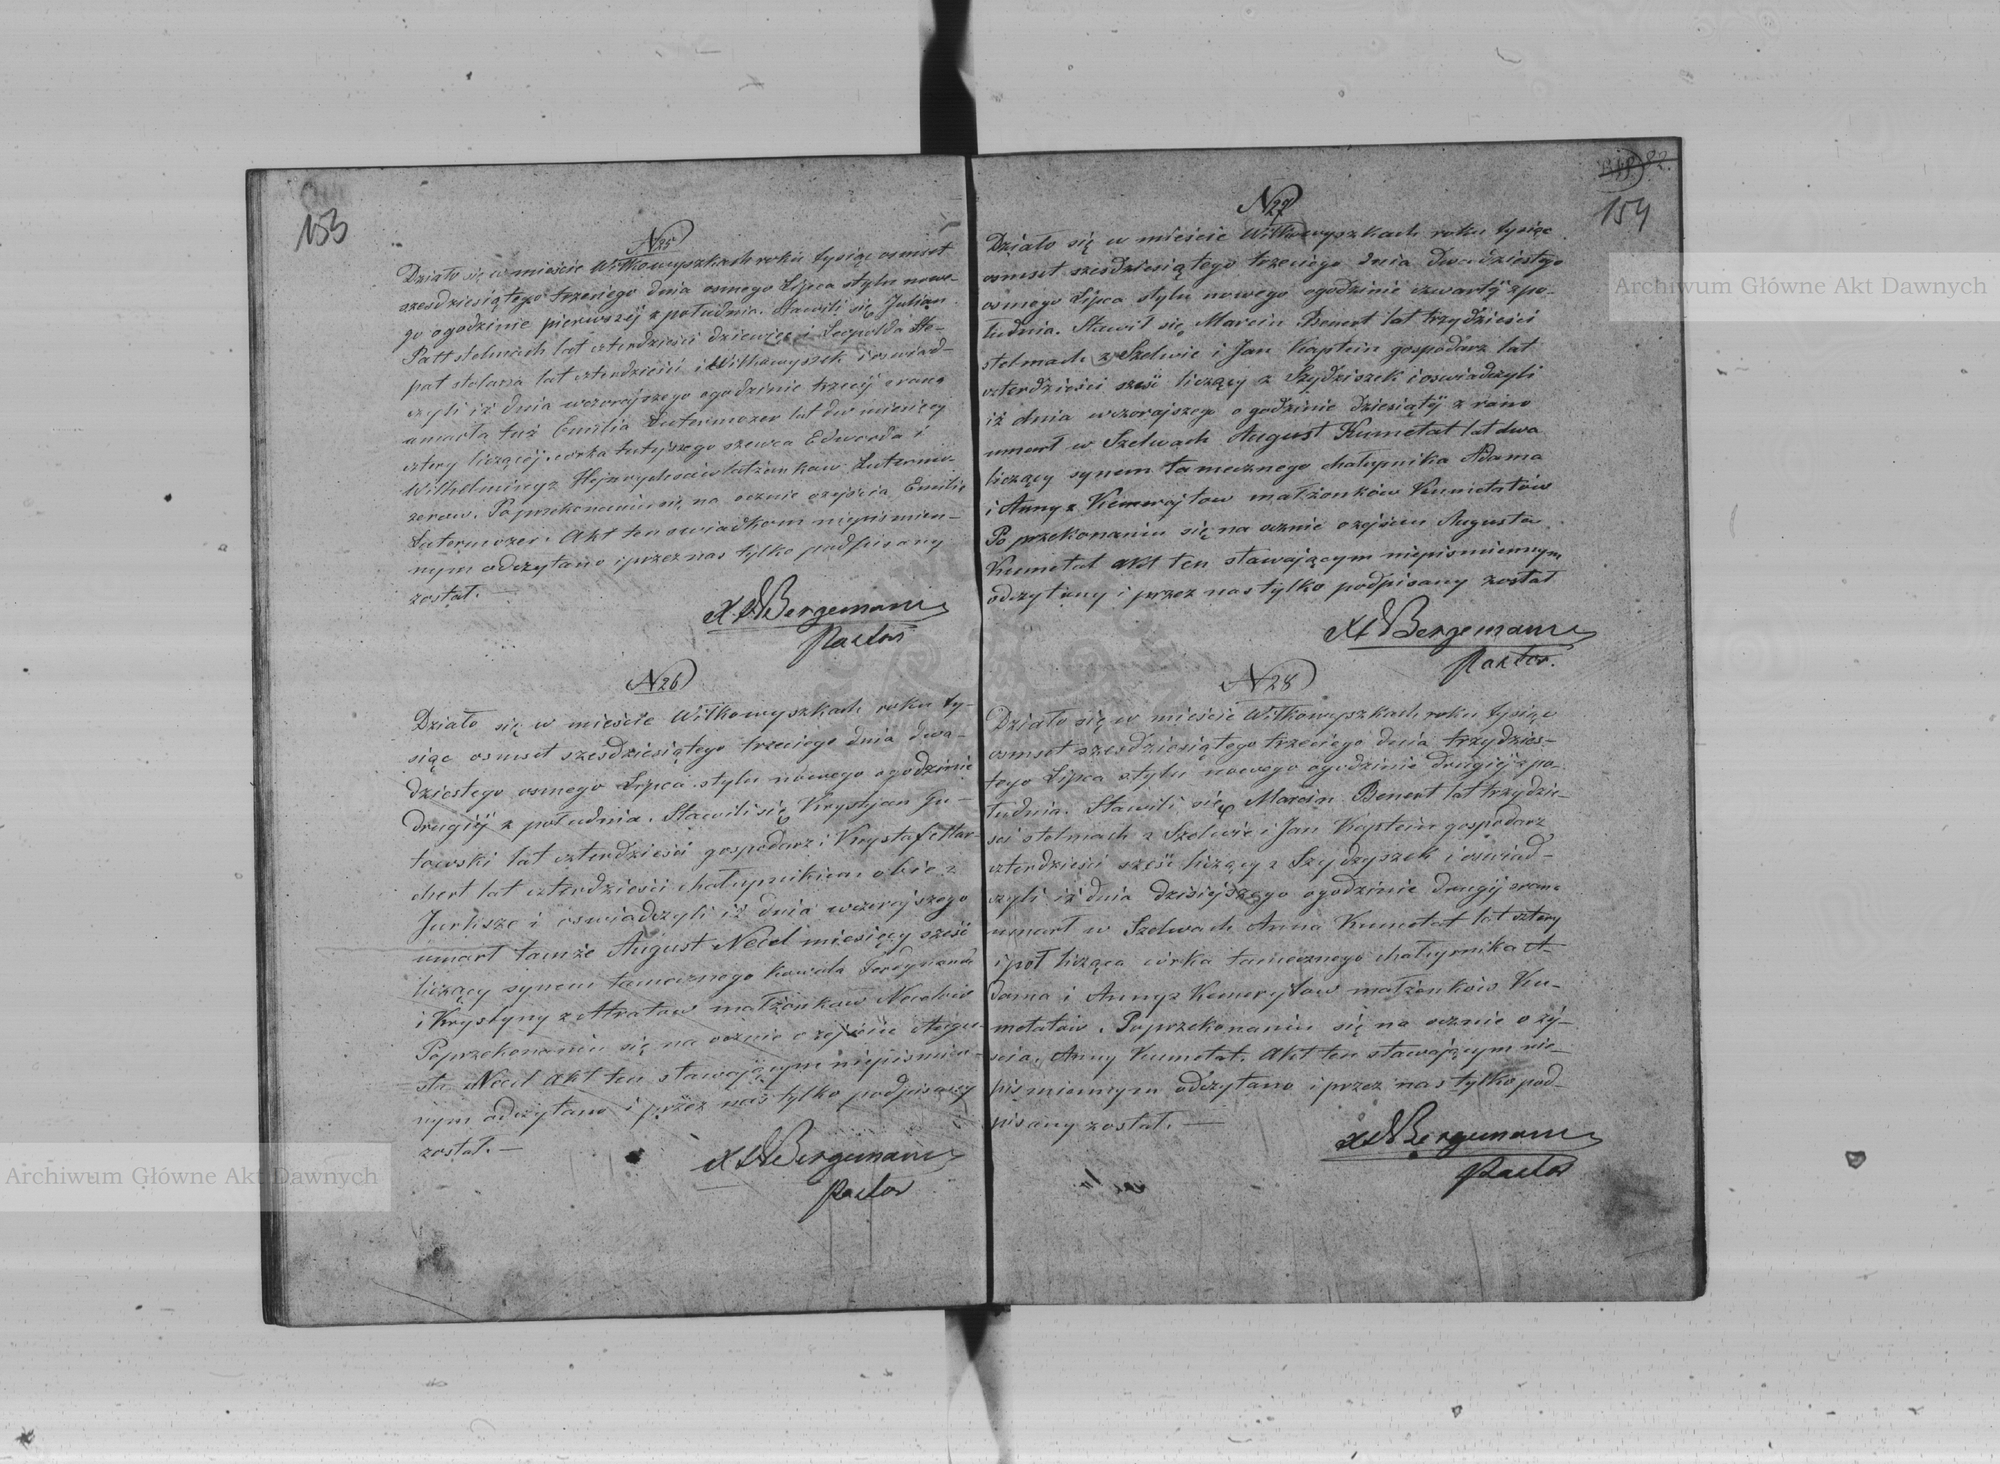 153
N25
Działo się w mieście Wiłkowyszkach roku tysiąc osmset
szesdziesiątego trzeciego dnia osmego Lipca stylu nowe-
go o godzinie pierwszéj z południa. Stawili się Julian
Patt stelmach lat czterdzieści dziewięć i Leopolda Ste-
pat stolarza lat czterdzieści i Wiłkowyszek i oswiad-
czyli iż dnia wczorajszego o godzinie trzeciéj z rana
umarła tuż Emilia Lutermozer lat dw miesięcy
cztery liczącéj, córka tutejszego szewca Edwarda i
Wilhelminy z małżonkow Lutermo-
zerow. Po przekonaniu się na ocznie o zejściu Emilii
Lutermozer. Akt ten swiadkom niepismien-
nym odczytano i przez nas tylko podpisany
został. —
X. A Bergemann
Pastor
N26
Działo się w mieście Wiłkowyszkach roku ty-
siąc osmset szesdziesiątego trzeciego dnia dwa-
dziestego osmego Lipca stylu nowego o godzinie
drugiéj z południa. Stawili się Krystyan Gu-
towski lat czterdzieści gospodarz i Krystof Mar-
chert lat czterdzieści chałupnikiem obie z
Jurksze i oswiadczyli iż dnia wczorajszego
umarł tamże August Necel miesięcy sześć
liczący synem tamecznego kowala Ferdynanda
i Krystyny z małżonkow Necelow
Po przekonaniu się na ocznie o zejściu Augu-
sta Necel Akt ten stawającym niepismien-
nym odczytano i przez nas tylko podpisany
został. —
X. A Bergemann
Pastor
82
154
N27
Działo się w mieście Wiłkowyszkach roku tysiąc
osmset szesdziesiątego trzeciego dnia dwadziestego
osmego Lipca stylu nowego o godzinie czwartéj z po-
łudnia. Stawił się Marcin Benert lat trzydzieści
stelmach z Szelwie i Jan Kaptein gospodarz lat
czterdzieści sześć liczący z Szydziszek i oswiadczyli
iż dnia wczorajszego o godzinie dziesiątéj z rana
umarł w Szelwach August Kumetat lat dwa
liczący synem tamecznego chałupnika Adama
i Anny z Kemerajtow małżonków Kumetatów
Po przekonaniu się na ocznie o zejściu Augusta
Kumetat akt ten stawającym niepismiennym
odczytany i przez nas tylko podpisany został
X. A Bergemann
Pastor.
N28
Działo się w mieście Wiłkowyszkach roku tysiąc
osmset szesdziesiątego trzeciego dnia trzydzies-
tego Lipca stylu nowego o godzinie drugiéj z po-
łudnia. Stawili się Marcin Benert lat trzydzie-
sci stelmach z Szelwie i Jan Kaptein gospodarz
czterdzieści sześć liczący z Szydzyszek i oswiad-
czyli iż dnia dzisiejszego o godzinie drugiéj z rana
umarł w Szelwach Anna Kumetat lat cztery
i pół licząca córka tamecznego chałupnika A-
dama i Anny z Kemerytow małżonków Ku-
metatów. Po przekonaniu się na ocznie o zej-
scia, Anny Kumetat. Akt ten stawającym nie-
pismiennym odczytano i przez nas tylko pod-
pisany został. —
X. A Bergemann
Pastor
Archiwum Główne Akt Dawnych
Archiwum Główne Akt Dawnych